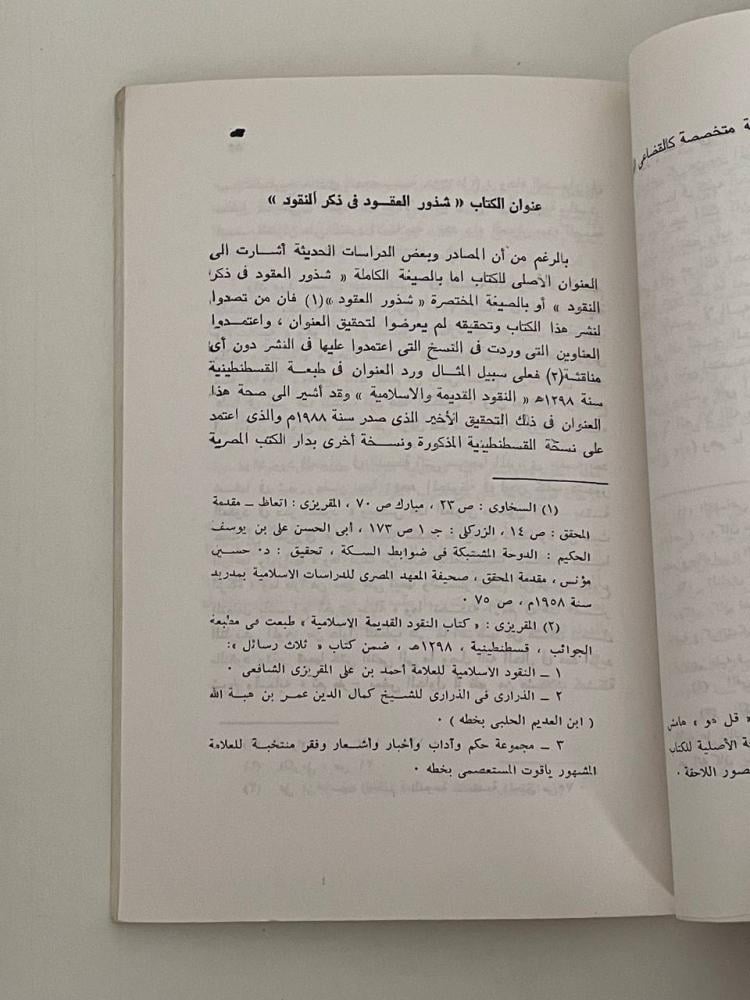 عنوان الكتاب « شذور العقود فى ذكر النقود »
بالرغم من أن المصادر وبعض الدراسات الحديثة أشارت الى
العنوان الأصلى للكتاب اما بالصيغة الكاملة « شذور العقود فى ذكر
النقود » أو بالصيغة المختصرة « شذور العقود »(١) فان من تصدوا
لنشر هذا الكتاب وتحقيقه لم يعرضوا لتحقيق العنوان ، واعتمدوا
العناوين التى وردت فى النسخ التى اعتمدوا عليها فى النشر دون أى
مناقشة(٢) فعلى سبيل المثال ورد العنوان فى طبعة القسطنطينية
سنة ١٢٩٨هـ « النقود القديمة والاسلامية » وقد أشير الى صحة هذا
العنوان فى ذلك التحقيق الأخير الذى صدر سنة ١٩٨٨م والذى اعتمد
على نسخة القسطنطينية المذكورة ونسخة أخرى بدار الكتب المصرية
(١) السخاوى : ص ٢٣ ، مبارك ص ٧٠ ، المقريزى : اتعاظ ــ مقدمة
المحقق : ص ١٤ ، الزركلى : جـ ١ ص ١٧٣ ، أبى الحسن على بن يوسف
الحكيم : الدوحة المشتبكة فى ضوابط السكة ، تحقيق : د٠ حسين
مؤنس ، مقدمة المحقق ، صحيفة المعهد المصرى للدراسات الاسلامية بمدريد
سنة ١٩٥٨م ، ص ٧٥ ٠
(٢) المقريزى : « كتاب النقود القديمة الاسلامية » طبعت فى مطبعة
الجوائب ، قسطنطينية ، ١٢٩٨هـ ، ضمن كتاب « ثلاث رسائل » :
١ ــ النقود الاسلامية للعلامة أحمد بن على المقريزى الشافعى ٠
٢ ــ الذرارى فى الذرارى للشيخ كمال الدين عمر بن هبة الله
( ابن العديم الحلبى بخطه ) ٠
٣ ــ مجموعة حكم وآداب وأخبار وأشعار وفقر منتخبة للعلامة
المشهور ياقوت المستعصمى بخطه ٠
متخصصة كالقضاعى
قل دو » هامش
ة الأصلية للكتاب
صور اللاحقة ٠